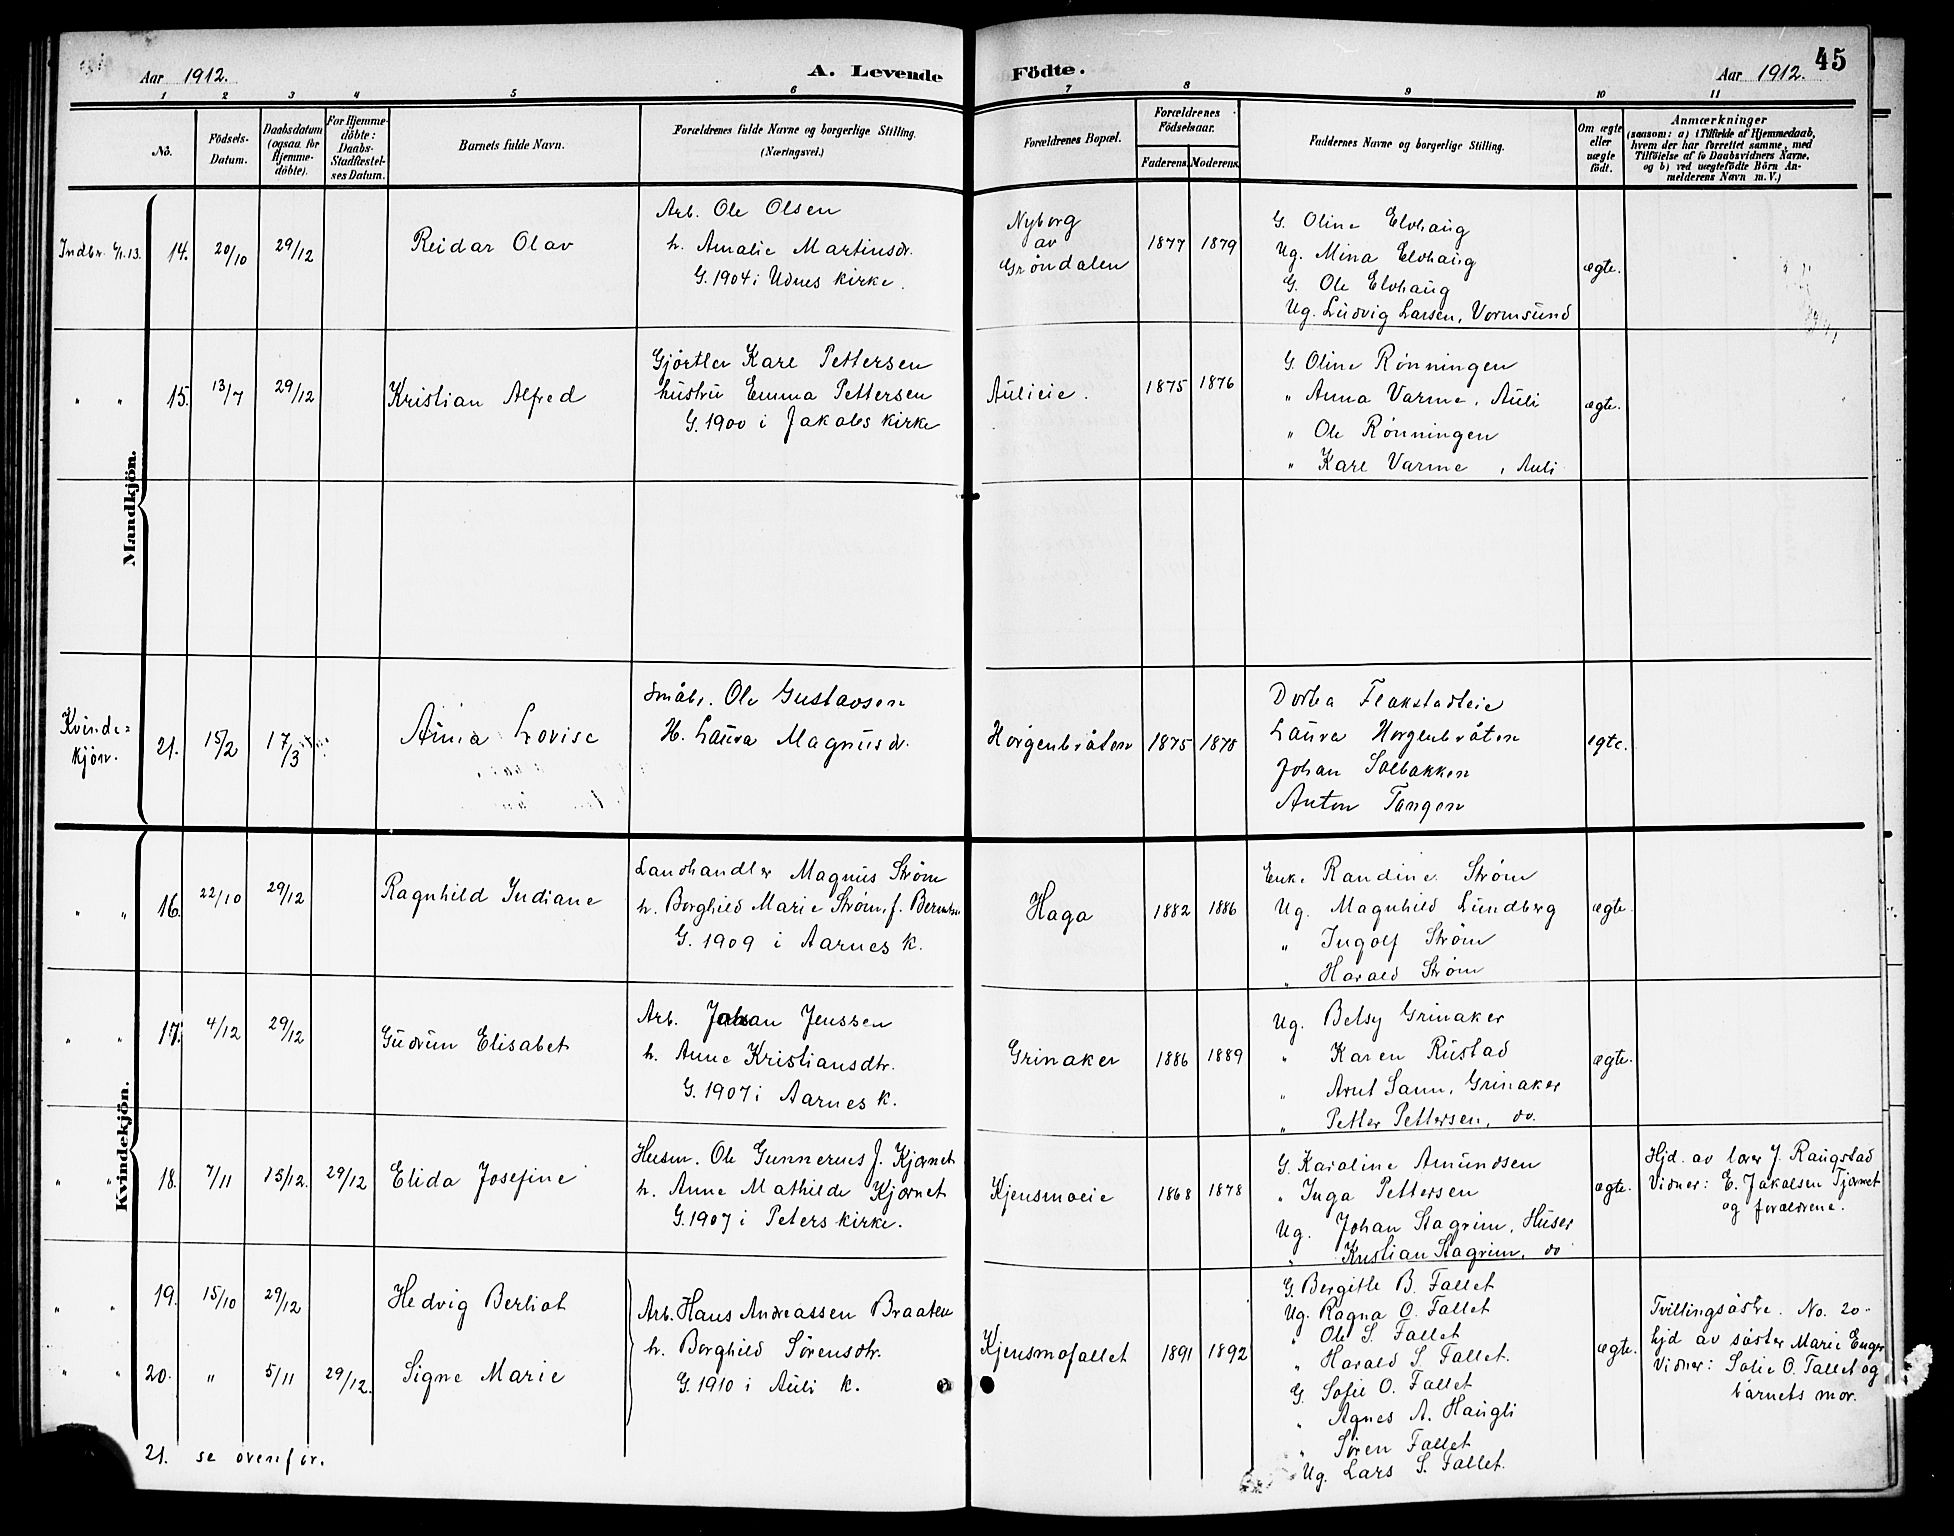 Aar 1912.
A. Levende Födte.
Aar 1912.
45
1 2 3 4 5 6 7 8 9 10 11
No.
Födsels-Datum.
Daabsdatum (ogsaa for Hjemme-döbte).
For Hjemme-döbte: Daabs-Stadfæstel-ses Datum.
Barnets fulde Navn.
Forældrenes fulde Navne og borgerlige Stilling.
(Næringsvei.)
Forældrenes Bopæl.
Forældrenes Födselsaar.
Faderens. Moderens.
Faddernes Navne og borgerlige Stilling.
Om ægte eller uægte födt.
Anmærkninger
(saasom: a) i Tilfælde af Hjemmedaab,
hvem der har forrettet samme, med
Tilföielse af to Daabsvidners Navne,
og b) ved uægtefödte Börn An-
melderens Navn m. V.)
Mandkjön.
Indbr. 4/1.13. 14. 20/10 29/12 Reidar Olav
Arb. Ole Olsen
h. Amalie Martinsdr.
G. 1904 i Udnes kirke.
Nyborg
av
Grøndalen
1877 1879
G. Oline Elvhaug
Ug. Mina Elvhaug
G. Ole Elvhaug
Ug. Ludvig Larsen, Vormsund
ægte.
" " 15. 13/7 29/12 Kristian Alfred
Gjørtler Karl Pettersen
hustru Emma Pettersen
G. 1900 i Jakobs kirke
Aulieie.
1875 1876
G. Oline Rønningen
" Anna Varme, Auli
" Ole Rønningen
" Karl Varme, Auli
ægte.
Kvinde=
kjøn.
21. 15/2 17/3 Anna Lovise
Småbr. Ole Gustavsen
H. Laura Magnusdr.
Horgenbråten
1875 1878
Dorthea Flakstadteie
Laura Horgenbråten
Johan Solbakken
Anton Tangen
egte.
Kvindekjön.
" " 16. 22/10 29/12 Ragnhild Indiane
Landhandler Magnus Strøm
h. Borghild Marie Strøm, f. Berntsn
G. 1909 i Aarnes k.
Haga
1882 1886
Enke Randine Strøm
Ug. Magnhild Lundberg
" Ingolf Strøm
" Harald Strøm
ægte.
" " 17. 4/12 29/12 Gudrun Elisabet
Arb. Johan Jenssen
h. Anne Kristiansdtr.
G. 1907 i Aarnes k.
Grinaker
1886 1889
Ug. Betsy Grinaker
" Karen Rustad
" Arnt Sann, Grinaker
" Petter Pettersen, do.
ægte.
" " 18. 7/11 15/12. 29/12 Elida Josefine
Husm. Ole Gunnerius J. Kjærnet
h. Anne Mathilde Kjærnet
G. 1907 i Peters kirke.
Kjensmoeie
1868 1878
G. Karoline Amundsen
" Inga Pettersen
Ug. Johan Stagrim, Huser
" Kristian Stagrim, do
ægte.
Hjd. av lærer J. Raugstad
Vidner: E. Jakobsen Tjærnet
og forældrene.
" " 19. 15/10 29/12 Hedvig Berliot
" " 20. " 5/11 29/12. Signe Marie
Arb. Hans Andreassen Braaten
h. Borghild Sørensdtr.
G. 1910 i Auli k.
Kjensmofallet
1891 1892
G. Bergitte B. Fallet
Ug. Ragna O. Fallet
" Ole S. Fallet
" Harald S. Fallet.
G. Sofie O. Fallet
" Agnes A. Haugli
" Søren Fallet
Ug. Lars S. Fallet.
ægte.
Tvillingsøstre. No. 20
hjd av søster Marie Enger
Vidner: Sofie O. Fallet og
barnets mor.
21. se ovenfor.